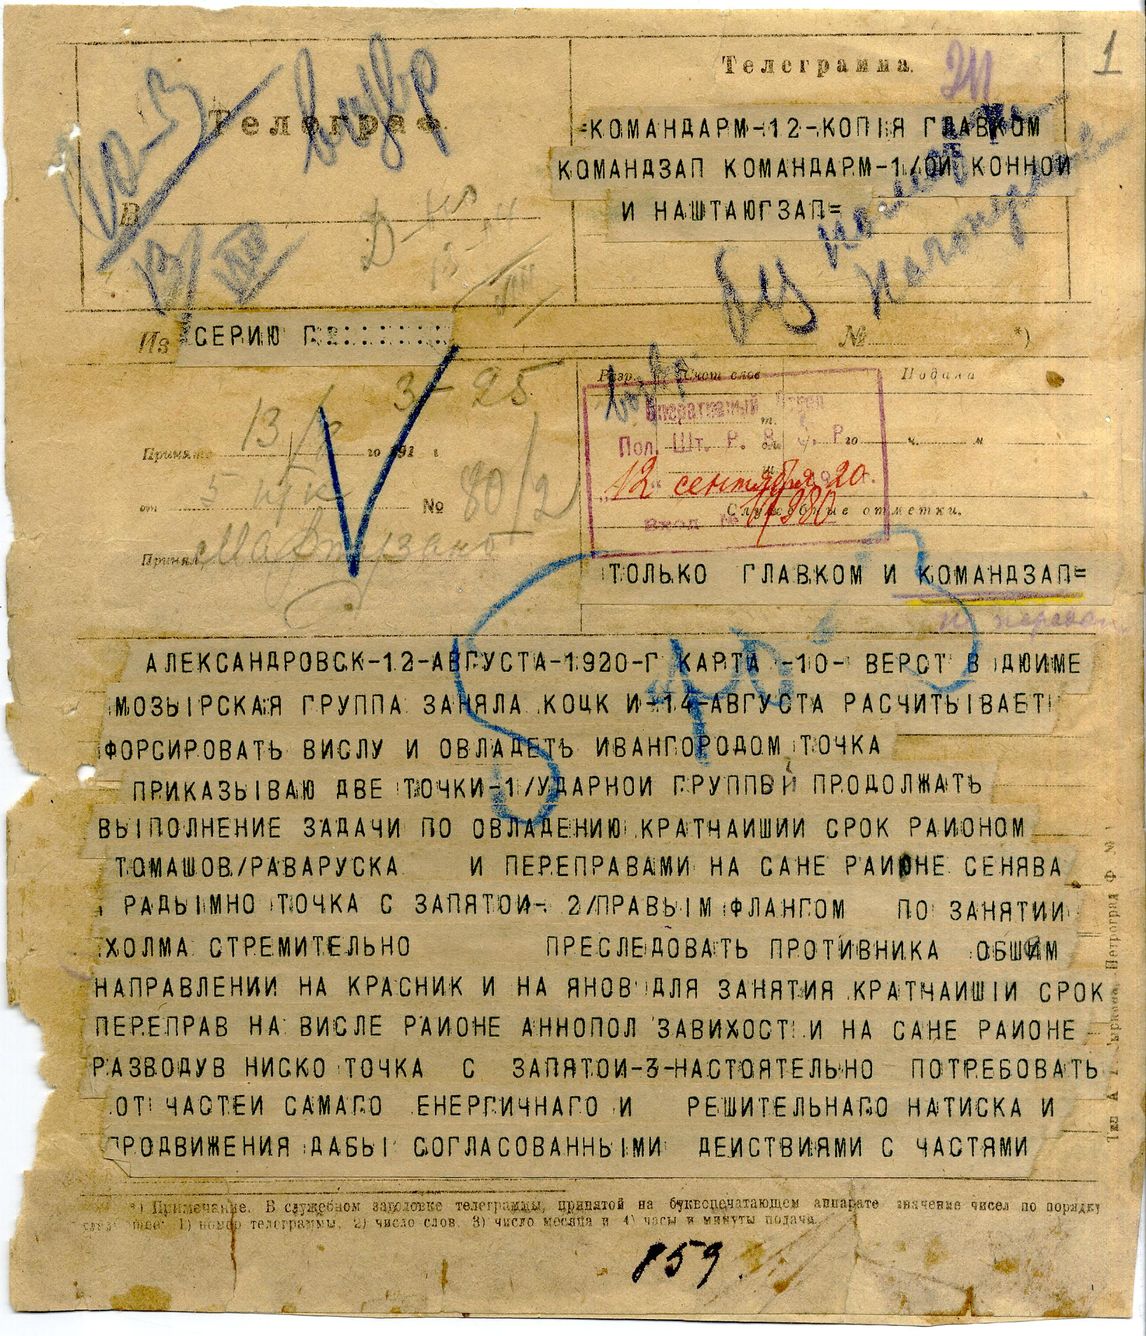 1
Телеграмма.
211
Телеграф
=КОМАНДАРМ-12-КОПІЯ ГЛАВКОМ
КОМАНДЗАП КОМАНДАРМ-1/ОЙ КОННОЙ
И НАШТАЮГЗАП=
В
13/VIII
Из СЕРИЮ Г
№ *)
Разр. Счет слов Подача
3-25
13/8
Принято го 191 г.
Оперативный Отдел
Пол. Шт. Р. В. С. Р.
12 сентября 20 г.
Вход №
от № 80/2
Служебные отметки.
Принял
ТОЛЬКО ГЛАВКОМ И КОМАНДЗАП=
АЛЕКСАНДРОВСК-12-АВГУСТА-1920-Г КАРТА -10- ВЕРСТ В ДЮИМЕ
МОЗЫРСКАЯ ГРУППА ЗАНЯЛА КОЦК И-14-АВГУСТА РАСЧИТЫВАЕТ
ФОРСИРОВАТЬ ВИСЛУ И ОВЛАДЕТЬ ИВАНГОРОДОМ ТОЧКА
ПРИКАЗЫВАЮ ДВЕ ТОЧКИ-1/УДАРНОЙ ГРУППВИ ПРОДОЛЖАТЬ
ВЫПОЛНЕНИЕ ЗАДАЧИ ПО ОВЛАДЕНИЮ КРАТЧАИШИИ СРОК РАИОНОМ
ТОМАШОВ/РАВАРУСКА И ПЕРЕПРАВАМИ НА САНЕ РАИОНЕ СЕНЯВА
РАДЫМНО ТОЧКА С ЗАПЯТОИ- 2/ПРАВЫМ ФЛАНГОМ ПО ЗАНЯТИИ
ХОЛМА СТРЕМИТЕЛЬНО ПРЕСЛЕДОВАТЬ ПРОТИВНИКА ОБШИМ
НАПРАВЛЕНИИ НА КРАСНИК И НА ЯНОВ ДЛЯ ЗАНЯТИЯ КРАТЧАИШІИ СРОК
ПЕРЕПРАВ НА ВИСЛЕ РАИОНЕ АННОПОЛ ЗАВИХОСТ И НА САНЕ РАИОНЕ
РАЗВОДУВ НИСКО ТОЧКА С ЗАПЯТОИ-3-НАСТОЯТЕЛЬНО ПОТРЕБОВАТЬ
ОТ ЧАСТЕИ САМАГО ЕНЕРГИЧНАГО И РЕШИТЕЛЬНАГО НАТИСКА И
ПРОДВИЖЕНИЯ ДАБЫ СОГЛАСОВАННЫМИ ДЕЙСТВИЯМИ С ЧАСТЯМИ
*) Примечание. В служебном заголовке телеграммы, принятой на буквопечатающем аппарате значение чисел по порядку
1) номер телеграммы, 2) число слов. 3) число месяца и 4) часы и минуты подачи.
859